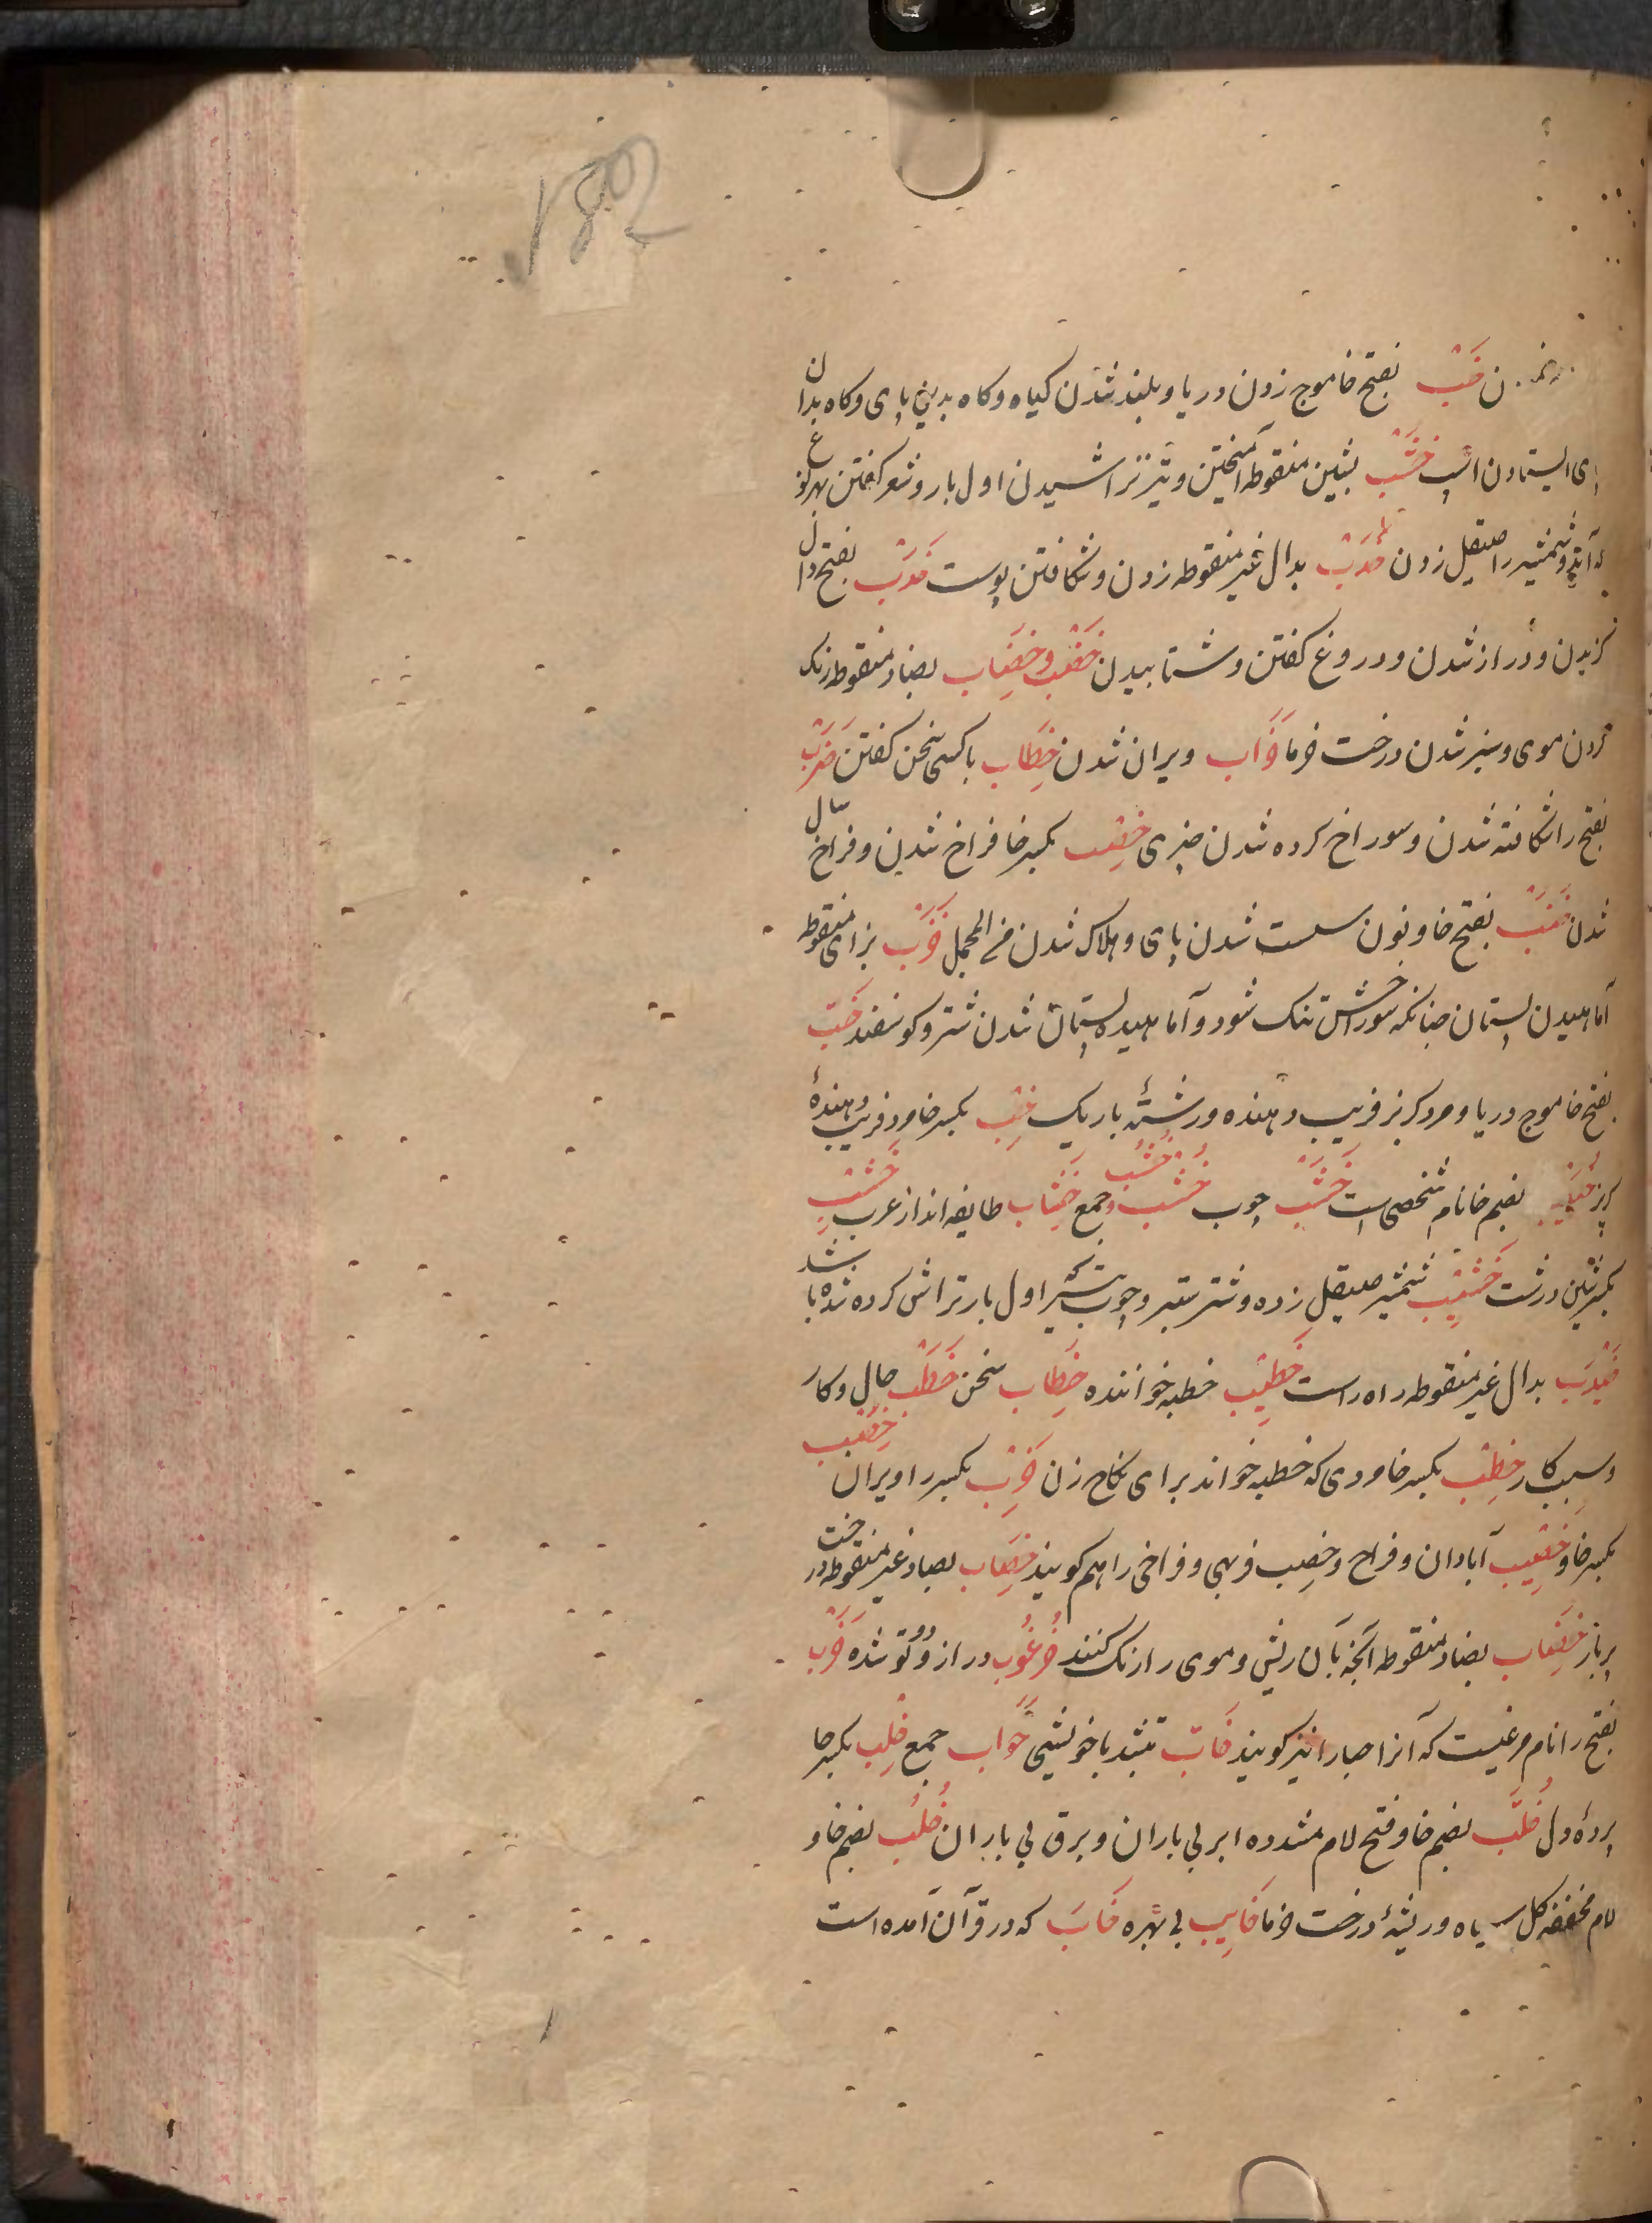 1802
خَبْ بفتح خا موج زدن دریا و بلند شدن کیاه و کاه بدین پای و کاه بدان
پای ایستادن اسپ خَشْب بشین منقوطه آمیختن و تیر تراشیدن اول بار و شعر کفتن بهر نوع
که آید و شمشیر را صیقل زدن خَدْب بدال غیر منقوطه زدن و شکافتن پوست خَدَب بفتح دال
کزیدن و دراز شدن و دروغ کفتن و شتابیدن خَضْب و خِضَاب بضاد منقوطه رنک
کردن موی و سبز شدن درخت خرما خَرَاب ویران شدن خِطَاب با کسی سخن کفتن خَرَب
بفتح را شکافته شدن و سوراخ کرده شدن چیزی خِصْب بکسر خا فراخ شدن و فراخ سال
شدن خَنَب بفتح خا و نون سست شدن پای و هلاک شدن من المجمل خَزَب بزای منقوطه
آماهیدن پستان چنانکه سوراخش تنک شود و آماهیده پستان شدن شتر و کوسفند خَبّ
بفتح خا موج دریا و مرد کربز فریب دهنده و رشتهٔ باریک خِبّ بکسر خا مرد فریب دهندهٔ
کربز خُبَیْب بضم خا نام شخصی است خَشَب چوب خُشْب خُشُب و جمع خِشَاب طایفه‌اند از عرب خَشِب
بکسر شین درشت خَشِیْب شمشیر صیقل زده و شتر ستبر و چوب تیر که اول بار تراش کرده شده باشد
خَیْدَب بدال غیر منقوطه راه راست خَطِیْب خطبه خواننده خِطَاب سخن خَطْب حال و کار
و سبب کار خِطْب بکسر خا مردی که خطبه خواند برای نکاح زن خَرِب بکسر را ویران خِصْب
بکسر خا و خَصِیْب آبادان و فراخ و خصب فربهی و فراخی را هم کویند خِصَاب بصاد غیر منقوطه درخت
پر بار خِضَاب بضاد منقوطه آنچه بآن ریش و موی را رنک کنند خُرعُوب دراز و دو تو شده خَرَب
بفتح را نام مرغیست که آنرا حبارا نیز کویند خَابّ بتشدید با خویشی خَوَابّ جمع خِلْب بکسر خا
پردهٔ دل خُلَّب بضم خا و فتح لام مشدده ابر بی باران و برق بی باران خُلْب بضم خا و
لام مخففه کل سیاه و ریشهٔ درخت خرما خَایِب بی بهره خَابَ که در قرآن آمده است